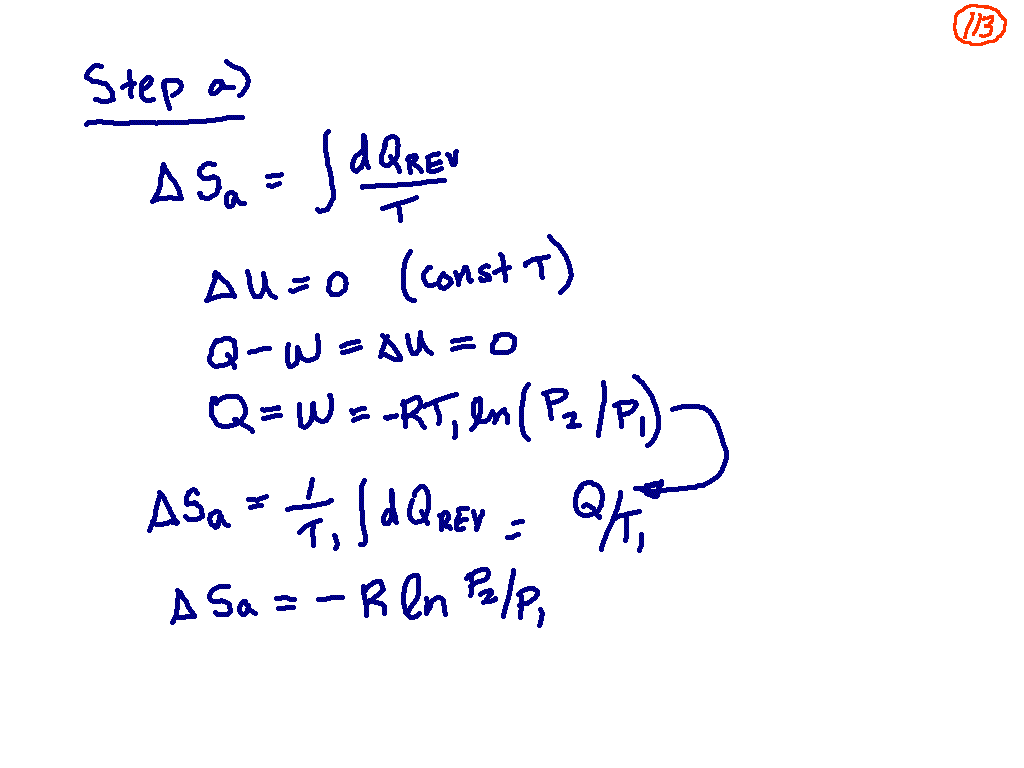 113
Step a)
ΔSₐ = ∫ dQ_REV / T
ΔU = 0 (const T)
Q - W = ΔU = 0
Q = W = -RT₁ ln(P₂/P₁)
ΔSₐ = 1/T₁ ∫dQ_REV = Q/T₁
ΔSa = - R ln P₂/P₁